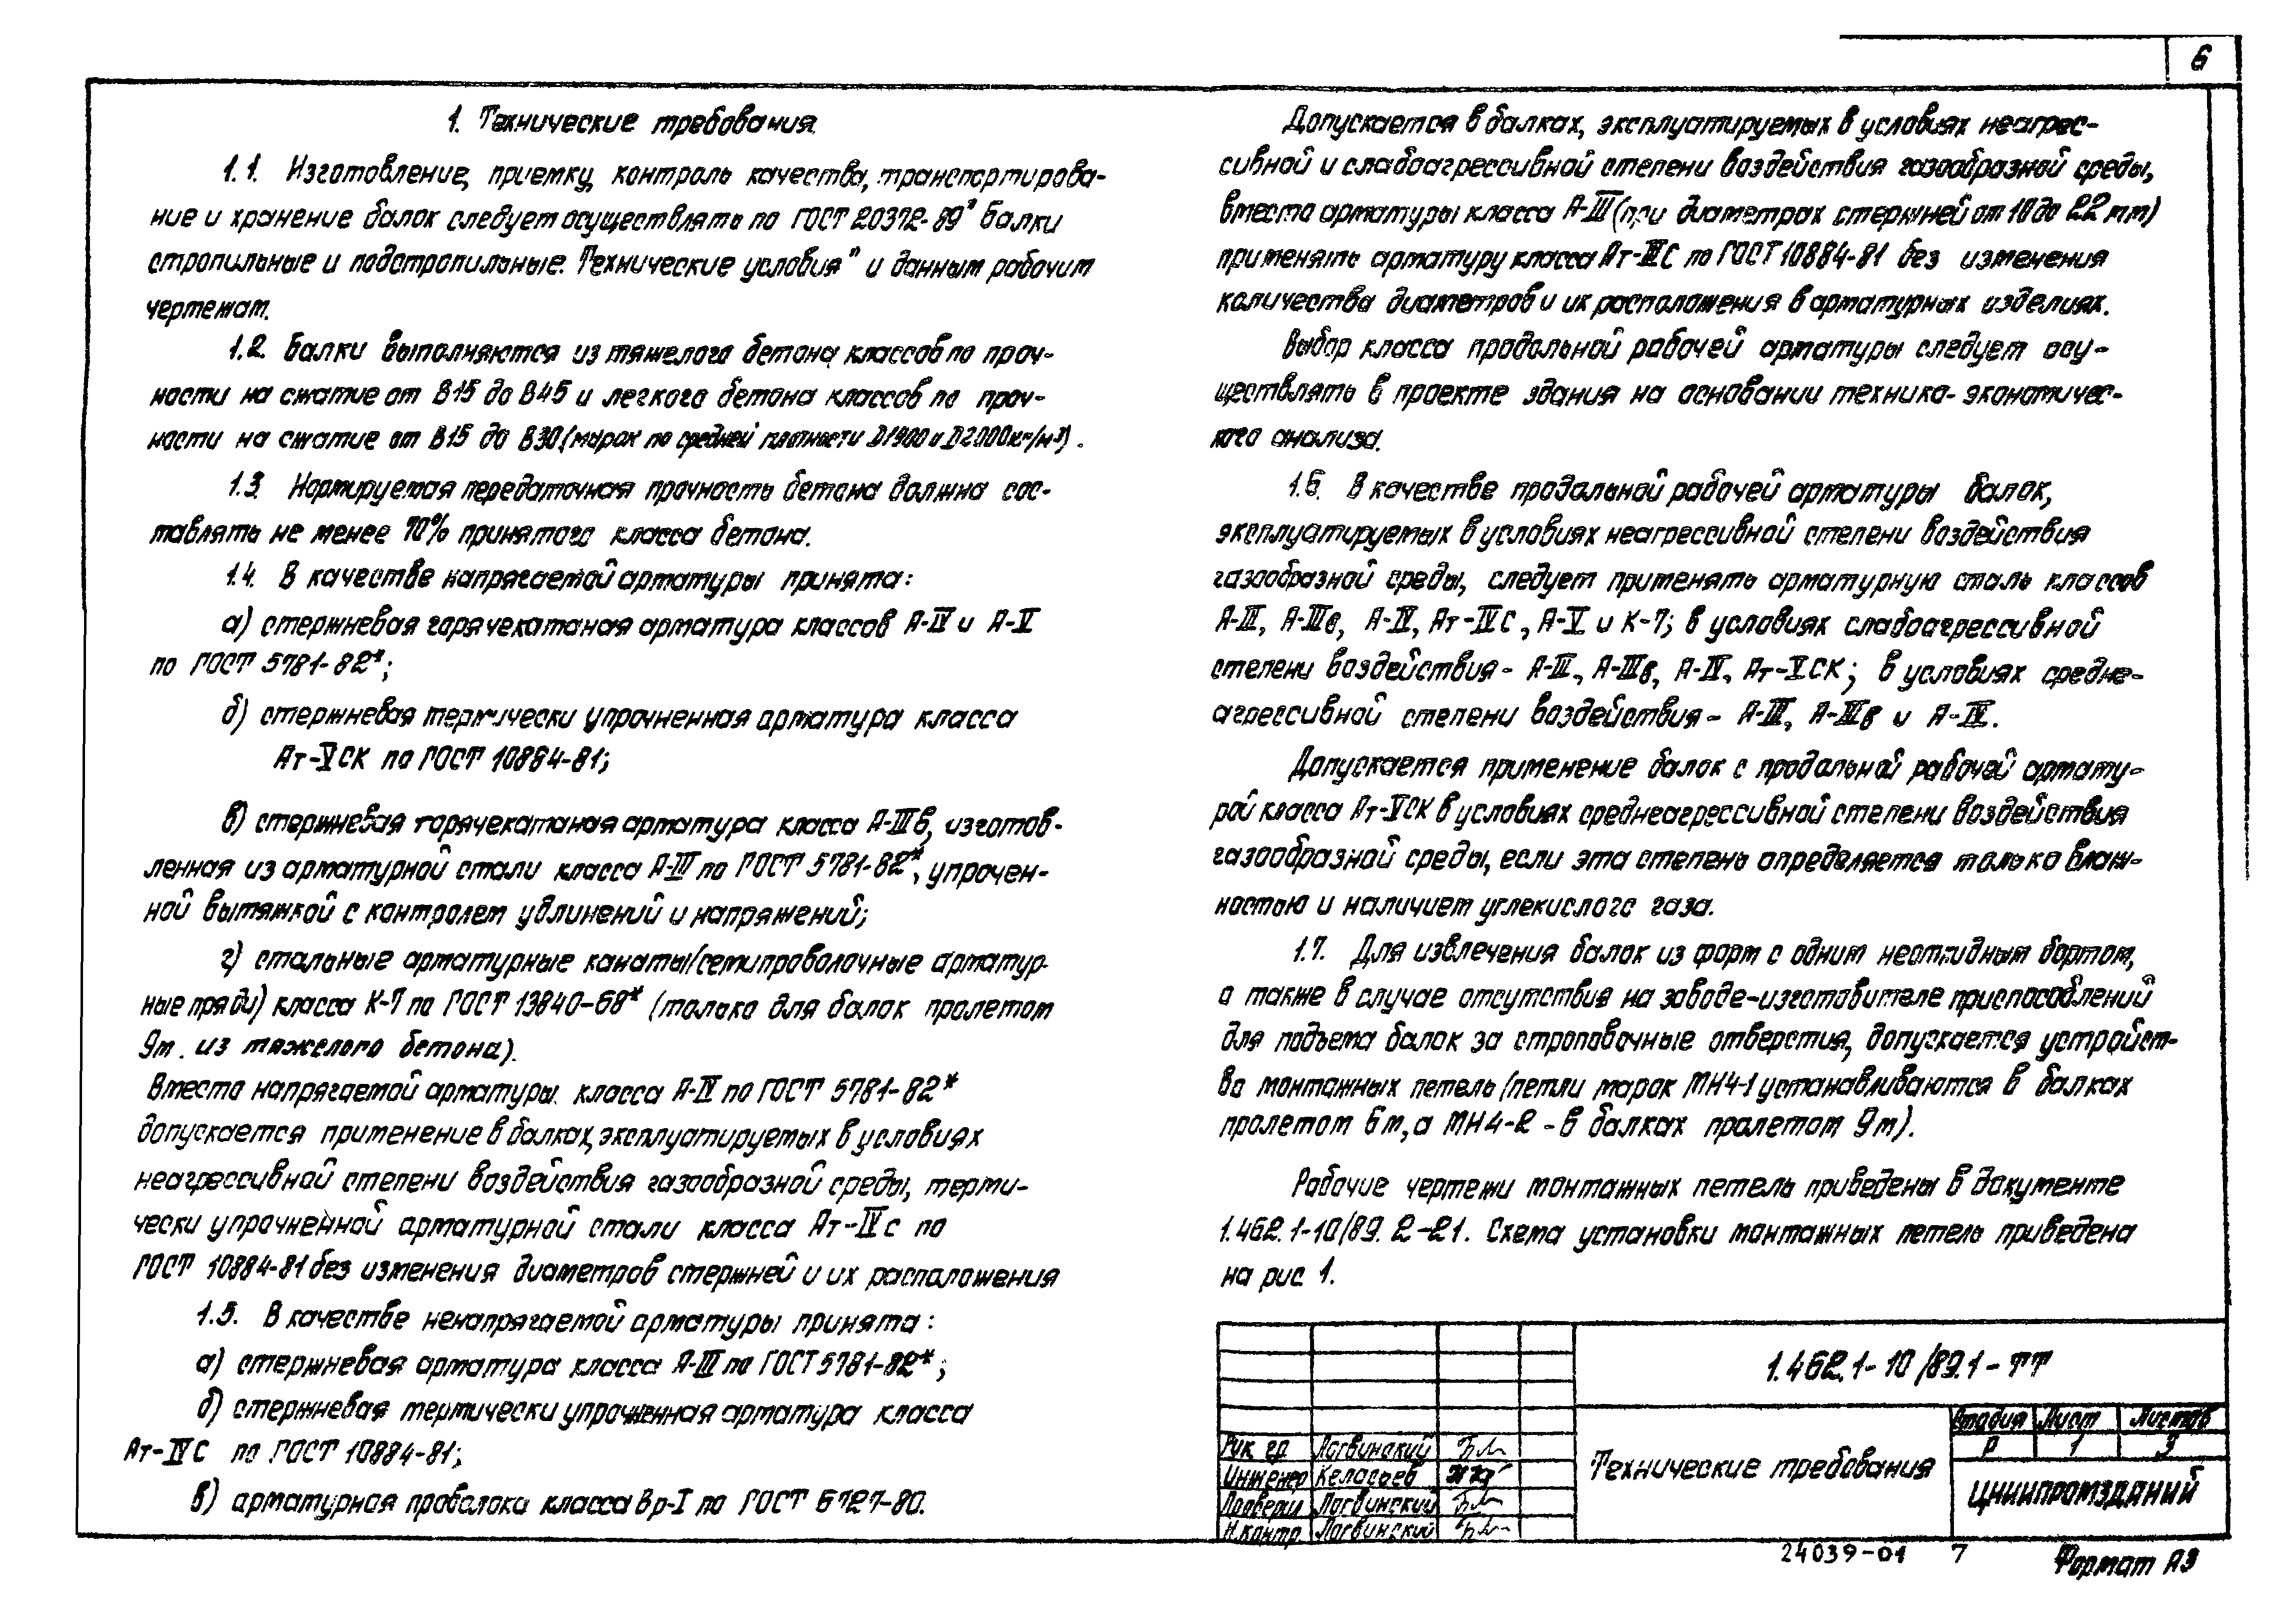 6
1. Технические требования.
1.1. Изготовление, приемку, контроль качества, транспортирова-
ние и хранение балок следует осуществлять по ГОСТ 20372-89 "Балки
стропильные и подстропильные. Технические условия" и данным рабочим
чертежам.
1.2. Балки выполняются из тяжелого бетона классов по проч-
ности на сжатие от В15 до В45 и легкого бетона классов по проч-
ности на сжатие от В15 до В30 (марок по средней плотности D1900 и D2000кг/м³).
1.3. Нормируемая передаточная прочность бетона должна сос-
тавлять не менее 70% принятого класса бетона.
1.4. В качестве напрягаемой арматуры принята:
а) стержневая горячекатаная арматура классов А-IV и А-V
по ГОСТ 5781-82*;
б) стержневая термически упрочненная арматура класса
Ат-VСК по ГОСТ 10884-81;
в) стержневая горячекатаная арматура класса А-IIIв, изготов-
ленная из арматурной стали класса А-III по ГОСТ 5781-82*, упрочен-
ной вытяжкой с контролем удлинений и напряжений;
г) стальные арматурные канаты (семипроволочные арматур-
ные пряди) класса К-7 по ГОСТ 13840-68* (только для балок пролетом
9м из тяжелого бетона).
Вместо напрягаемой арматуры класса А-IV по ГОСТ 5781-82*
допускается применение в балках, эксплуатируемых в условиях
неагрессивной степени воздействия газообразной среды, терми-
чески упрочненной арматурной стали класса Ат-IVс по
ГОСТ 10884-81 без изменения диаметров стержней и их расположения
1.5. В качестве ненапрягаемой арматуры принята:
а) стержневая арматура класса А-III по ГОСТ 5781-82*;
б) стержневая термически упрочненная арматура класса
Ат-IVС по ГОСТ 10884-81;
в) арматурная проволока класса Вр-I по ГОСТ 6727-80.
Допускается в балках, эксплуатируемых в условиях неагрес-
сивной и слабоагрессивной степени воздействия газообразной среды,
вместо арматуры класса А-III (при диаметрах стержней от 10 до 22 мм)
применять арматуру класса Ат-IIIС по ГОСТ 10884-81 без изменения
количества диаметров и их расположения в арматурных изделиях.
Выбор класса продольной рабочей арматуры следует осу-
ществлять в проекте здания на основании технико-экономичес-
кого анализа.
1.6. В качестве продольной рабочей арматуры балок,
эксплуатируемых в условиях неагрессивной степени воздействия
газообразной среды, следует применять арматурную сталь классов
А-III, А-IIIв, А-IV, Ат-IVС, А-V и К-7; в условиях слабоагрессивной
степени воздействия - А-III, А-IIIв, А-IV, Ат-VСК; в условиях средне-
агрессивной степени воздействия - А-III, А-IIIв и А-IV.
Допускается применение балок с продольной рабочей армату-
рой класса Ат-VСК в условиях среднеагрессивной степени воздействия
газообразной среды, если эта степень определяется только влаж-
ностью и наличием углекислого газа.
1.7. Для извлечения балок из форм с одним неоткидным бортом,
а также в случае отсутствия на заводе-изготовителе приспособлений
для подъема балок за строповочные отверстия, допускается устройст-
во монтажных петель (петли марок МН4-1 устанавливаются в балках
пролетом 6м, а МН4-2 - в балках пролетом 9м).
Рабочие чертежи монтажных петель приведены в документе
1.462.1-10/89.2-21. Схема установки монтажных петель приведена
на рис 1.
1.462.1-10/89.1-ТТ
Рук. гр. Логвинский
Инженер Келасьев
Проверил Логвинский
Н.контр Логвинский
Технические требования
Стадия Лист Листов
Р 1 3
ЦНИИПРОМЗДАНИЙ
24039-01 7
Формат А3